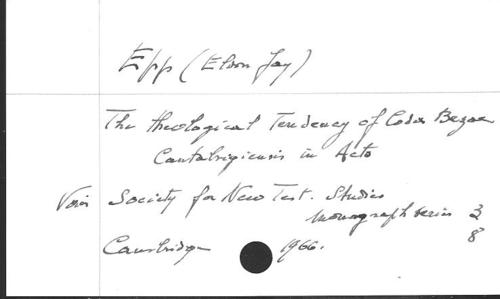 Epp (Eldon Jay)
The theological Tendency of Codex Bezae
Cantabrigiensis in Acts
Voir Society for New Test. Studies
monograph series 3
8
Cambridge 1966.